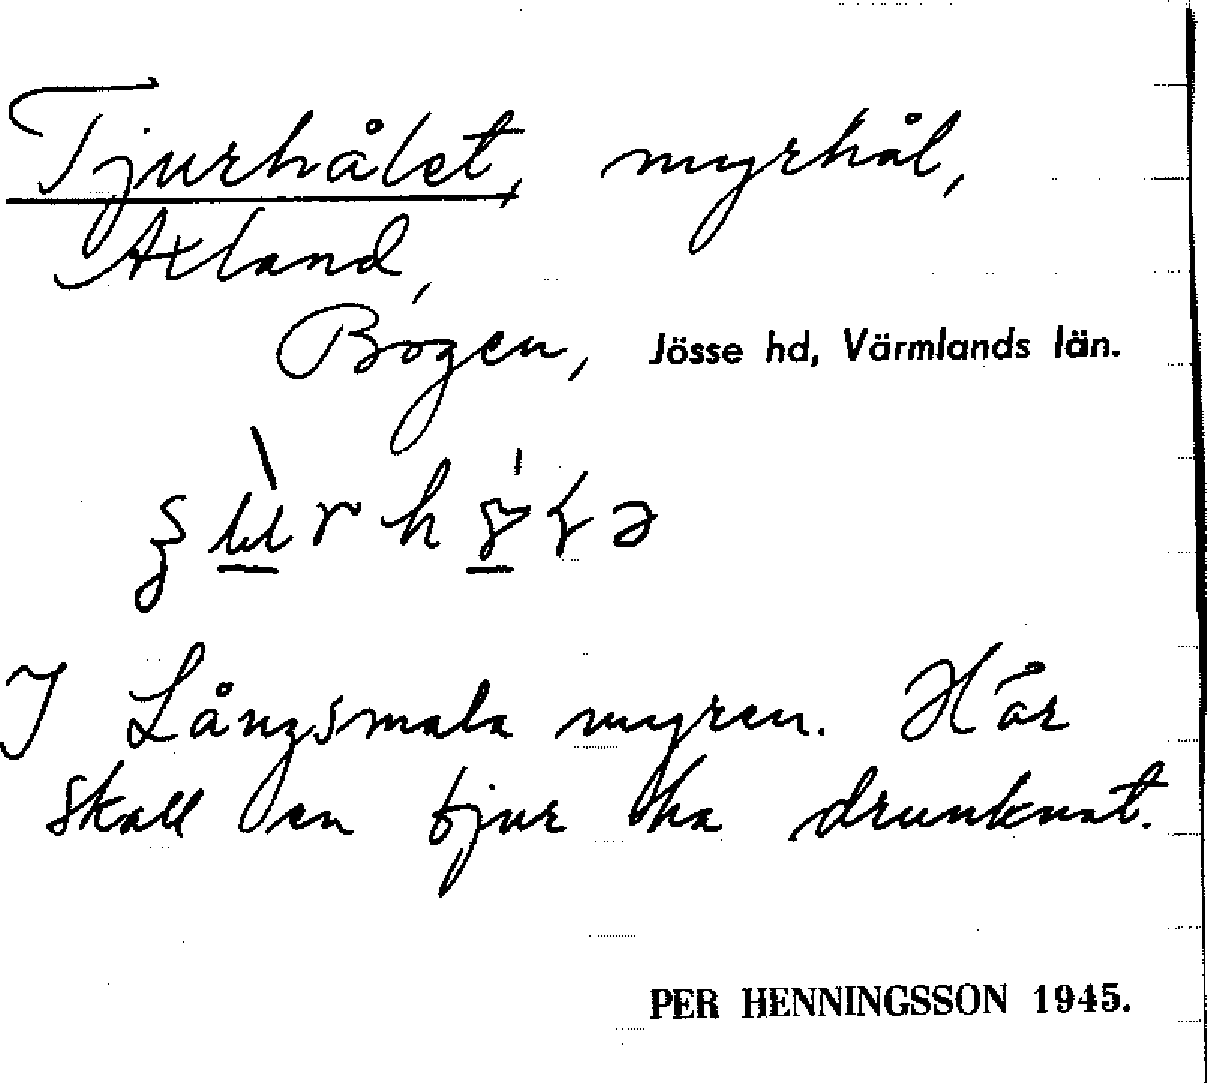 Tjurhålet, myrhål,
Axland,
Bogen, Jösse hd, Värmlands län.
I Långsmala myren. Här
skall en tjur ha drunknat.
PER HENNINGSSON 1945.